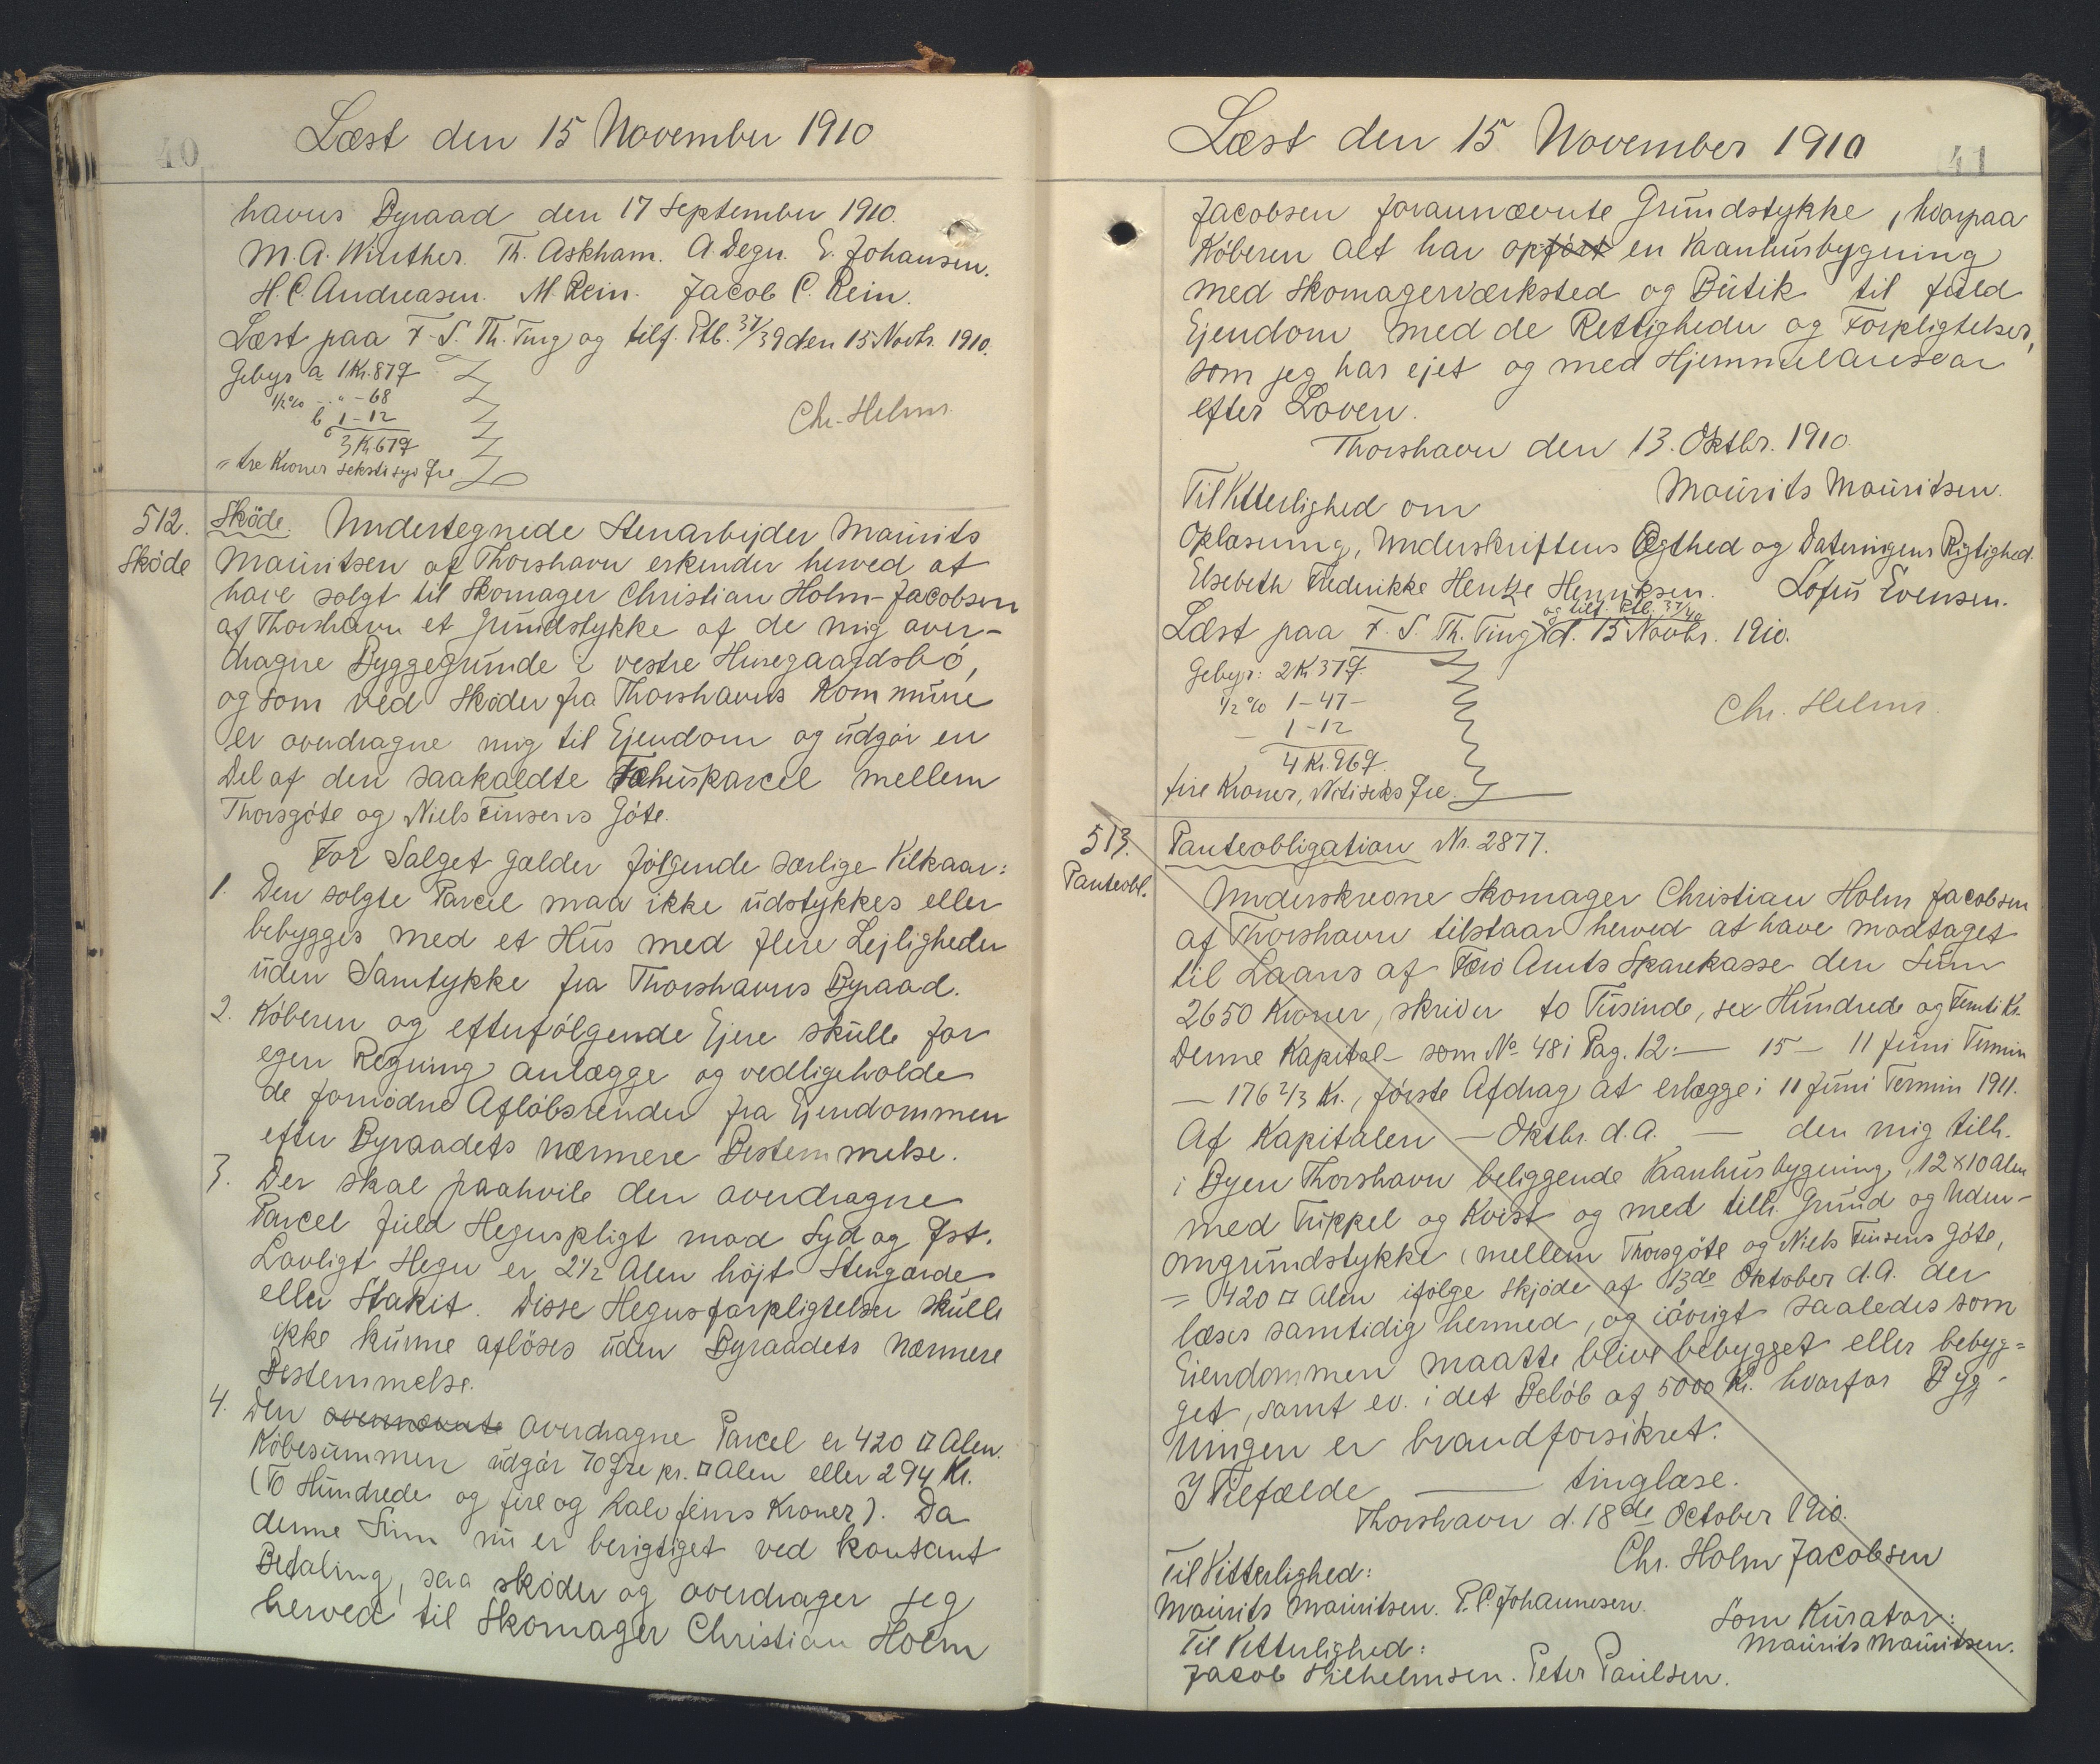 40
Læst den 15 November 1910
havns Byraad den 17 September 1910.
M. A. Winther. Th. Askham. A. Degn. E. Johansen.
H. C. Andreasen. M. Rein. Jacob C. Rein.
Læst paa F. S. Th. Ting og tilf. Ptb. 37/39 den 15 Novbr. 1910.
Gebyr a 1 Kr. 87 Ø
1/2 % - " - 68
b 1 - 12
3 Kr 67 Ø
= tre Kroner sekstisyv Øre
Chr. Helms
512.
Sköde
Sköde. Undertegnede Stenarbejder Maurits
Mauritsen af Thorshavn erkender herved at
have solgt til Skomager Christian Holm-Jacobsen
af Thorshavn et Grundstykke af de mig over-
dragne Byggegrunde i vestre Husegaardsbö,
og som ved Sköder fra Thorshavns Kommune
er overdragne mig til Ejendom og udgör en
Del af den saakaldte Fæhusparcel mellem
Thorsgöte og Niels Finsens Göte.
For Salget gælder fölgende særlige Vilkaar:
1. Den solgte Parcel maa ikke udstykkes eller
bebygges med et Hus med flere Lejligheder
uden Samtykke fra Thorshavns Byraad.
2. Köberen og efterfölgende Ejere skulle for
egen Regning anlægge og vedligeholde
de fornödne Aflöbsrender fra Ejendommen
efter Byraadets nærmere Bestemmelse.
3. Der skal paahvile den overdragne
Parcel fuld Hegnspligt mod Syd og Øst.
Lovligt Hegn er 2 1/2 Alen höjt Stengærde
eller Stakit. Disse Hegnsforpligtelser skulle
ikke kunne aflöses uden Byraadets nærmere
Bestemmelse.
4. Den ovennævnte overdragne Parcel er 420 □ Alen.
Köbesummen udgör 70 Øre pr. □ Alen eller 294 Kr.
(To Hundrede og fire og halvfems Kroner). Da
denne Sum nu er berigtiget ved kontant
Betaling, saa sköder og overdrager jeg
herved til Skomager Christian Holm
Læst den 15 November 1910
41
Jacobsen forannævnte Grundstykke, hvorpaa
Köberen alt har opfört en Vaanhusbygning
med Skomagerværksted og Butik til fuld
Ejendom med de Rettigheder og Forpligtelser,
som jeg har ejet og med Hjemmelansvar
efter Loven.
Thorshavn den 13. Oktbr. 1910.
Maurits Mauritsen.
Til Vitterlighed om
Oplæsning, Underskriftens Ægthed og Dateringens Rigtighed.
Elsebeth Frederikke Hentze Henriksen. Lofus Evensen.
og tilf. Ptb. 37/40
Læst paa F. S. Th. Ting d. 15 Novbr. 1910.
Gebyr: 2 Kr 37 Ø
1/2 % 1 - 47 -
- 1 - 12
4 Kr. 96 Ø.
fire Kroner, Nitiseks Øre.
Chr. Helms.
513.
Panteobl.
Panteobligation Nr. 2877.
Underskrevne Skomager Christian Holm Jacobsen
af Thorshavn tilstaar herved at have modtaget
til Laans af Færö Amts Sparekasse den Sum
2650 Kroner, skriver to Tusinde, sex Hundrede og Femti Kr.
Denne Kapital - som No 48 i Pag. 12: — 15 — 11 Juni Termin
— 176 2/3 Kr., förste Afdrag at erlægge i 11 Juni Termin 1911.
Af Kapitalen — Oktbr. d. A. — den mig tilh.
i Byen Thorshavn beliggende Vaanhusbygning, 12 x 10 Alen
med Trippel og Kvist og med tilh. Grund og Uden-
omgrundstykke (mellem Thorsgöte og Niels Finsens Göte,
= 420 □ Alen ifölge Skjöde af 13de Oktober d. A. der
læses samtidig hermed, og iövrigt saaledes som
Eiendommen maatte blive bebygget eller bebyg=
get, samt ev. i det Belöb af 5000 Kr. hvorfor Byg-
ningen er brandforsikret.
I Tilfælde — tinglæse.
Thorshavn d. 18de October 1910.
Chr. Holm Jacobsen
Til Vitterlighed:
Maurits Mauritsen. P. C. Johannesen.
Som Kurator:
Maurits Mauritsen.
Til Vitterlighed:
Jacob Vilhelmsen. Peter Paulsen.